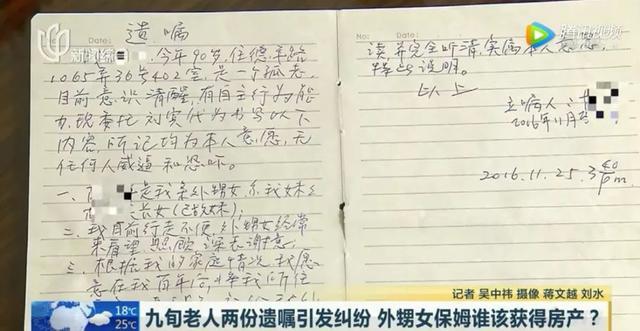 新闻综
腾讯视频
Date:
遗嘱
今年90岁,住德平路
1065弄36号402室,是一个孤老
目前意识清醒,有自主行为能
力,现委托刘实代为书写以下
内容,所记均为本人意愿,无
任何人威逼和恐吓。
一、是我亲外甥女,系我妹之
长女(已故妹);
二、我目前行走不便,外甥女经常
来看望照顾,深表谢意;
三、根据我的家庭情况,我愿
意在我百年后将我所住
Date:
读,并完全听清,实属本人意愿,
特此说明。
以上
立嘱人:
2016年11月
2016.11.25.3 40 pm.
记者 吴中祎 摄像 蒋文越 刘水
18℃
25℃
九旬老人两份遗嘱引发纠纷 外甥女保姆谁该获得房产?